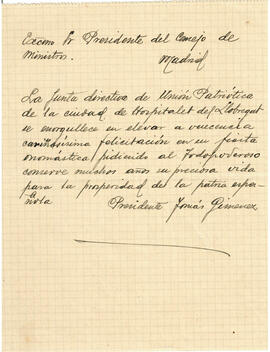 Excmo Sr Presidente del Consejo de
Ministros. Madrid
La Junta directiva de Unión Patriótica
de la ciudad de Hospitalet del Llobregat
se enorgullece en elevar a vuecencia
cariñosísima felicitación en su fiesta
onomástica, pidiendo al Todopoderoso
conserve muchos años su preciosa vida
para la prosperidad de la patria espa-
ñola
Presidente Tomás Gimenez